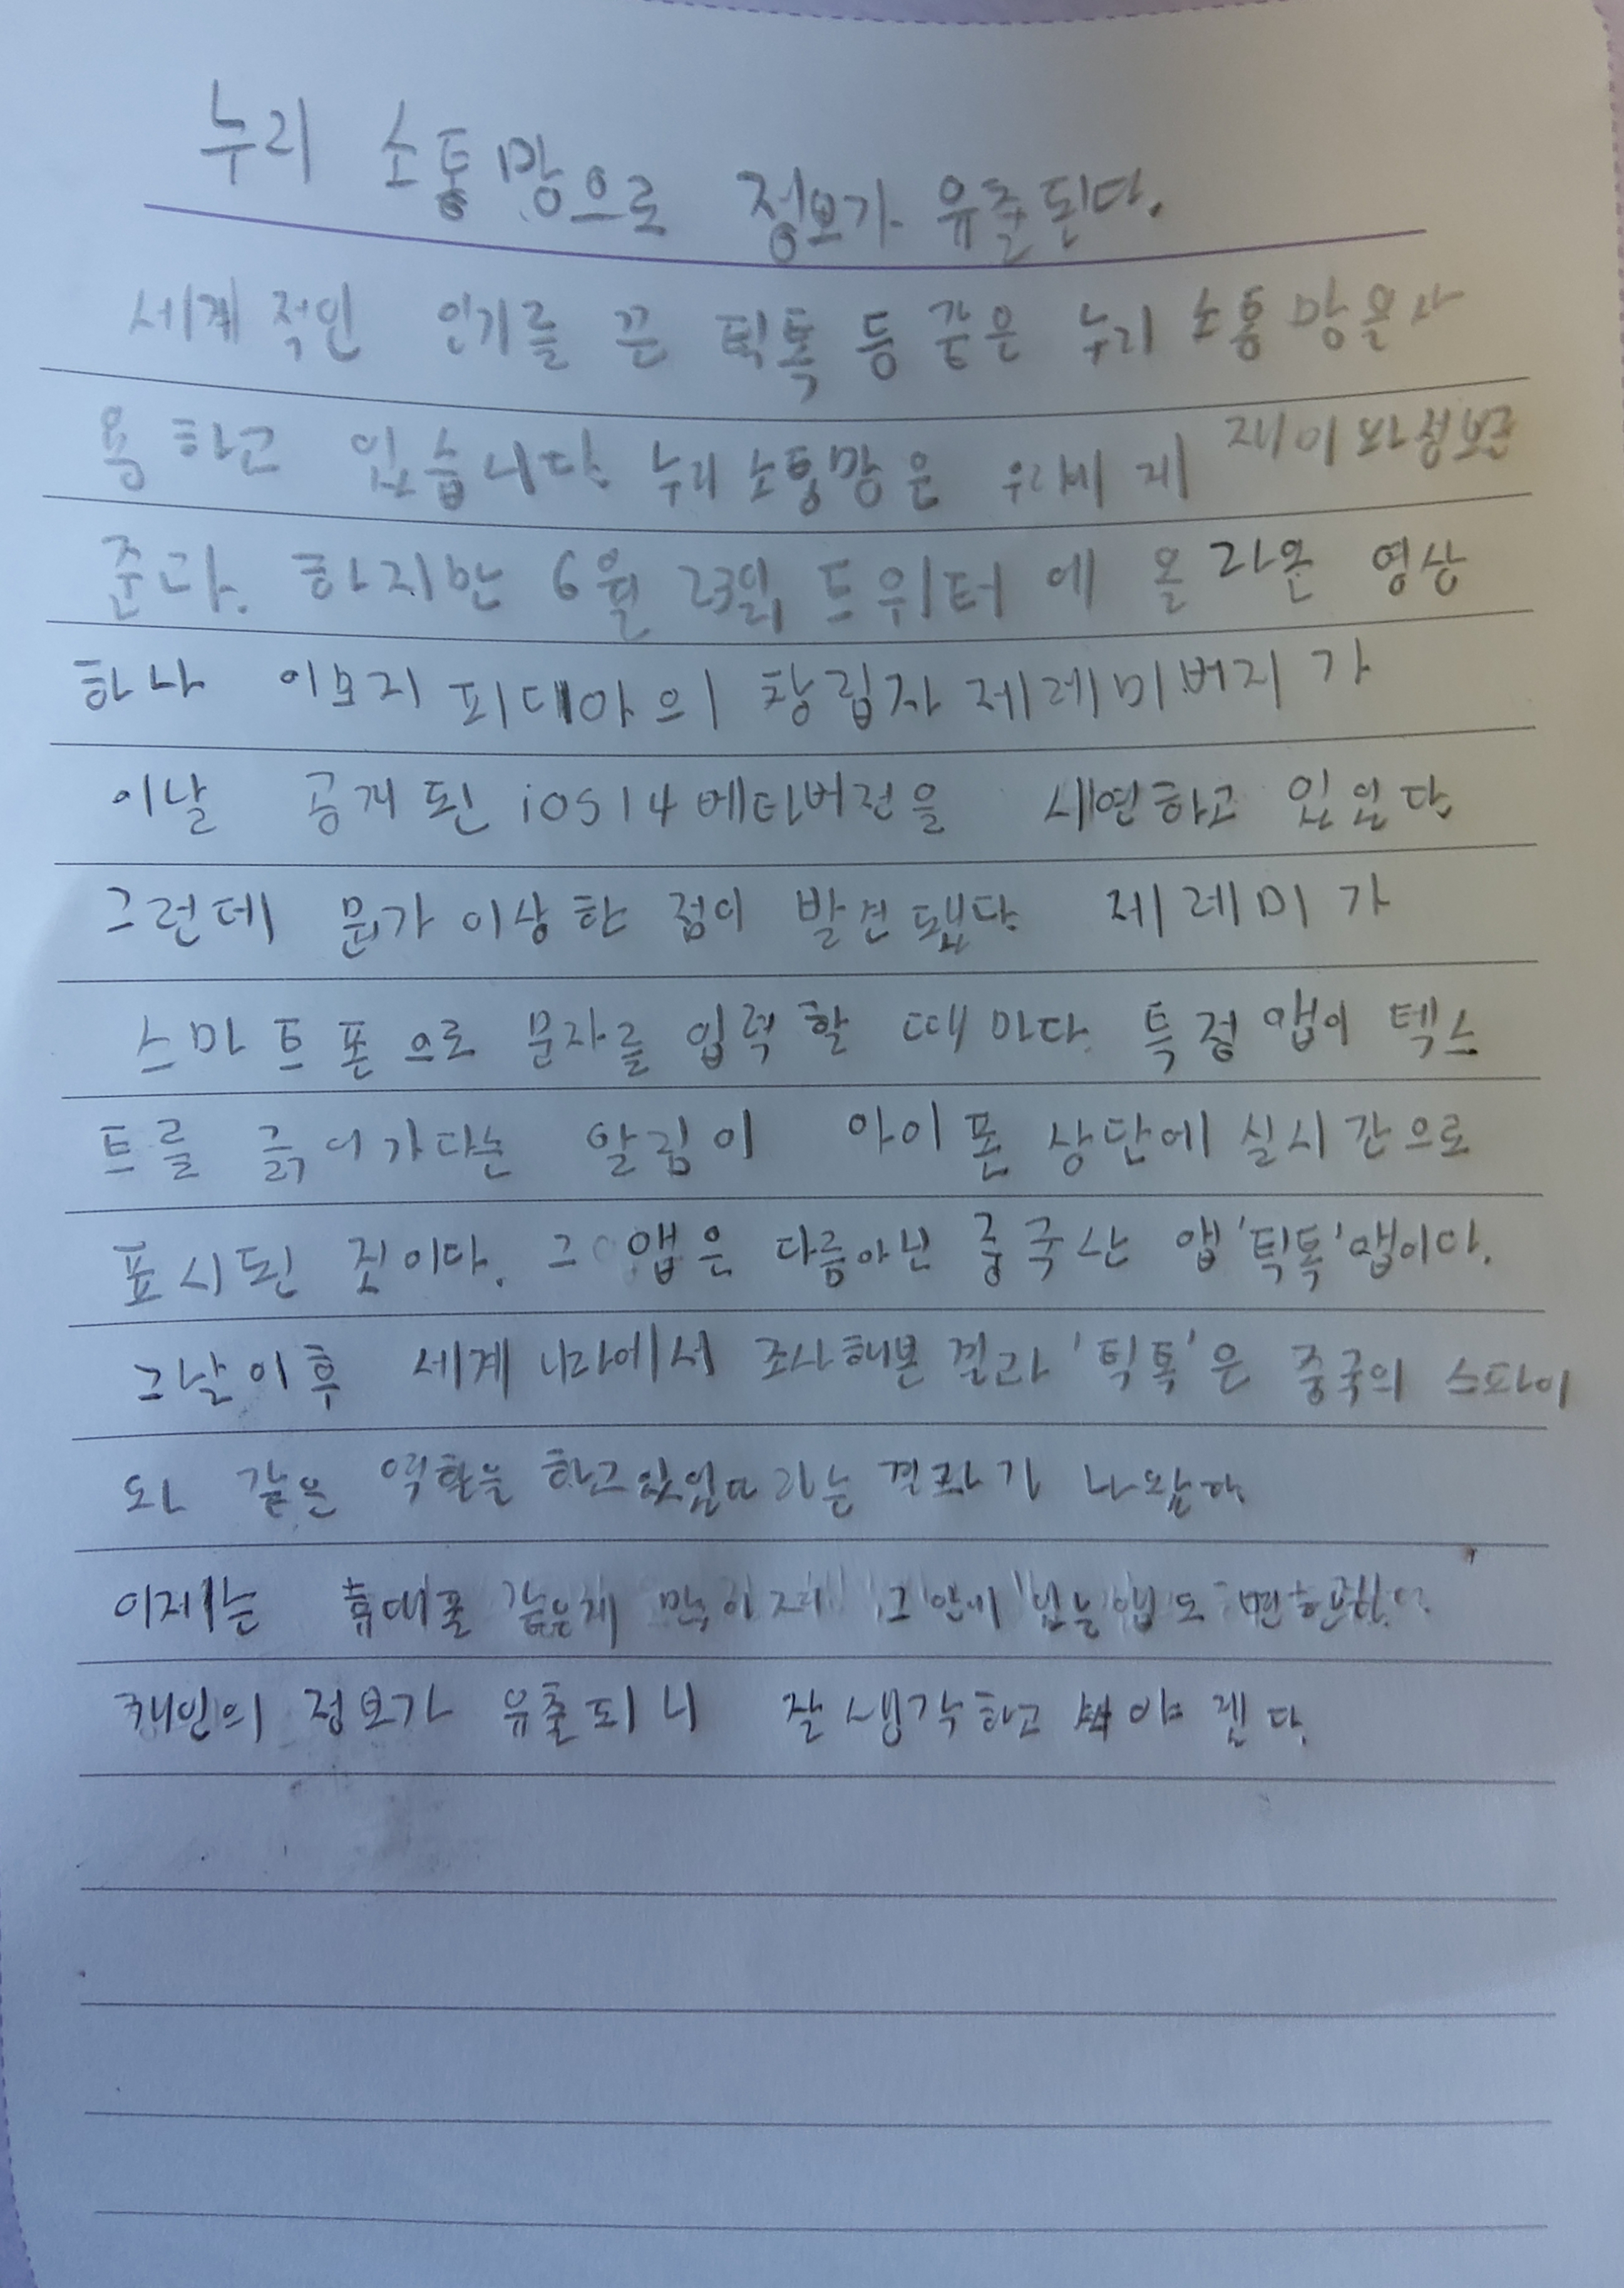 누리 소통망으로 정보가 유출된다.
세계적인 인기를 끈 틱톡 등 같은 누리 소통망을 사
용하고 있습니다. 누리소통망은 우리에게 재미와 정보를
준다. 하지만 6월 23일 트위터에 올라온 영상
하나 이모지 피디아의 창립자 제레미버지가
이날 공개된 iOS14 베타버전을 시연하고 있었다
그런데 뭔가 이상한 점이 발견됐다. 제레미가
스마트폰으로 문자를 입력할 때마다. 특정 앱이 텍스
트를 긁어가다는 알림이 아이폰 상단에 실시간으로
표시된 것이다. 그 앱은 다름아닌 중국산 앱 '틱톡' 앱이다.
그날이후 세계 나라에서 조사해본 결과 '틱톡'은 중국의 스파이
와 같은 역할을 하고있었다라는 결과가 나왔다.
이제는 휴대폴 같은게 많이 그 안에 있는 앱도
개인의 정보가 유출되니 잘 생각하고 써야겐다.